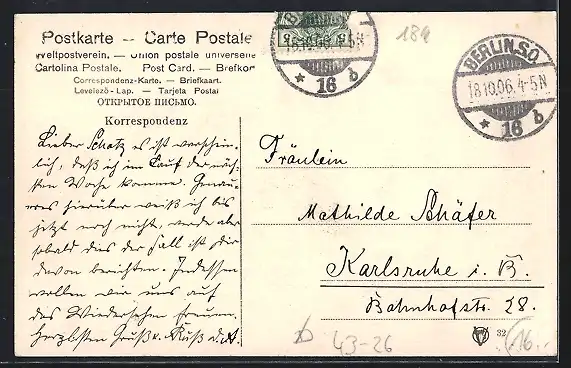 Postkarte — Carte Postale
Weltpostverein. — Union postale universelle
Cartolina Postale. Post Card. — Brefkort
Correspondenz-Karte. — Briefkaart.
Levelező-Lap. — Tarjeta Postal
ОТКРЫТОЕ ПИСЬМО.
Korrespondenz
18.10.06.
* 16 b
189
BERLIN.S.O.
18.10.06.4-5N
* 16 b
Lieber Schatz es ist wahrschein-
lich, daß ich im Lauf der näch-
sten Woche komme. Genau-
eres hierüber weiß ich bis
jetzt noch nicht, werde aber
sobald dies der Fall ist dir
davon berichten. Indessen
wollen wir uns auf
das Wiedersehen freuen.
Herzlichsten Gruß u. Kuß d. A.
Fräulein
Mathilde Schäfer
Karlsruhe i. B.
Bahnhofstr. 28.
43-26
32
16.